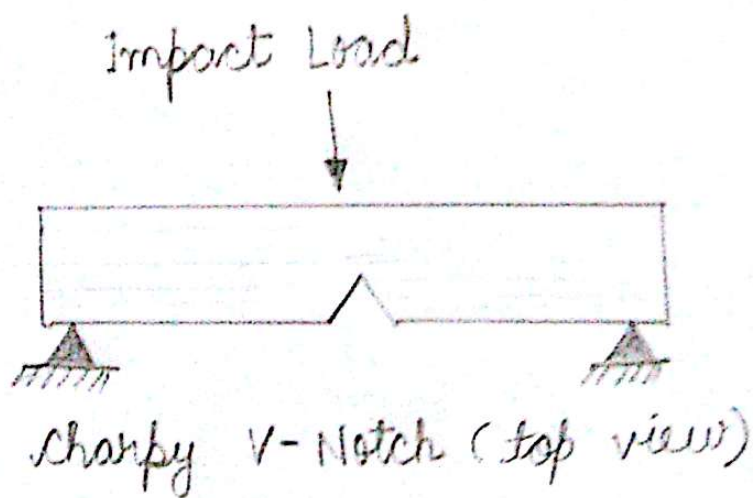 Impact Load
Charpy V-Notch (top view)